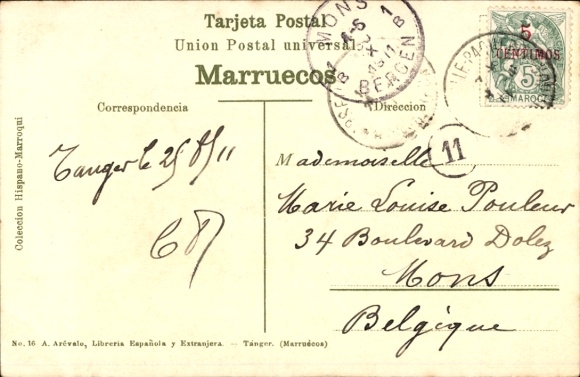 Tarjeta Postal
Union Postal universal
Marruecos
Correspondencia
Direccion
MONS
BERGEN
5
CENTIMOS
5
MAROC
11
Coleccion Hispano-Marroqui
Tanger le 25/8/11
Mademoiselle
Marie Louise Pouleur
34 Boulevard Dolez
Mons
Belgique
No. 16 A. Arévalo, Libreria Española y Extranjera. — Tánger. (Marruecos)